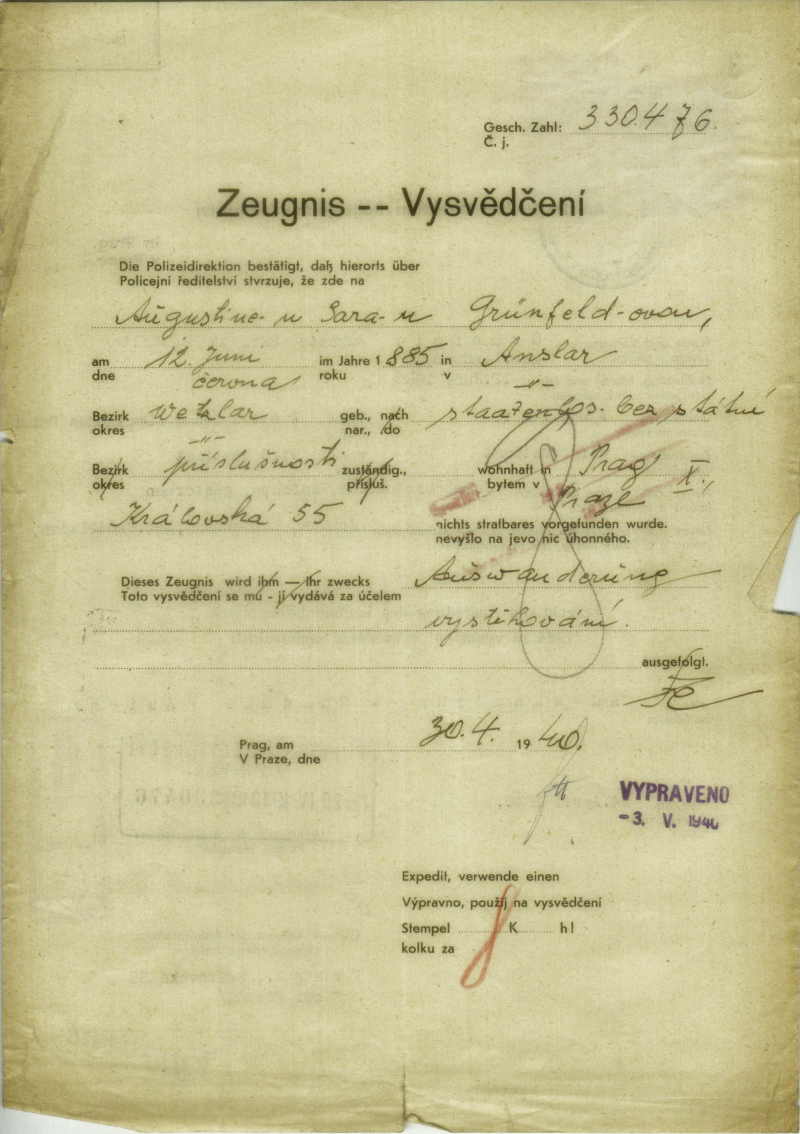 Gesch. Zahl: 330.476.
Č. j.
Zeugnis -- Vysvědčení
Die Polizeidirektion bestätigt, daß hierorts über
Policejní ředitelství stvrzuje, že zde na
Augustine-u Sara-u Grünfeld-ovou,
am 12. Juni im Jahre 1885 in Anslar
dne června roku v -„-
Bezirk Wetzlar geb., nach staatenlos. bez státní
okres -„- nar., do
Bezirk příslušnosti zuständig., wohnhaft in Prag X.,
okres přísluš. bytem v Praze
Královská 55 nichts strafbares vorgefunden wurde.
nevyšlo na jevo nic úhonného.
Dieses Zeugnis wird ihm — Ihr zwecks Auswanderung
Toto vysvědčení se mu - jí vydává za účelem
vystěhování.
ausgefolgt.
Prag, am 30.4. 1940.
V Praze, dne
VYPRAVENO
-3. V. 1940
Expedit, verwende einen
Výpravno, použij na vysvědčení
Stempel K h!
kolku za